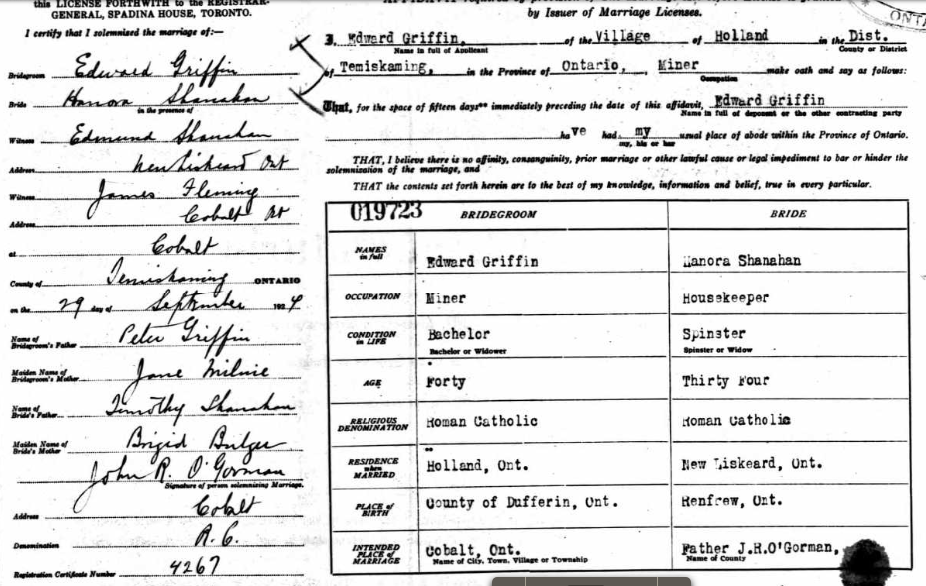 this LICENSE FORTHWITH to the REGISTRAR-
GENERAL, SPADINA HOUSE, TORONTO.
I certify that I solemnized the marriage of:—
Bridegroom Edward Griffin
Bride Hanora Shanahan
in the presence of
Witness Edmund Shanahan
Address New Liskeard Ont
Witness James Fleming
Address Cobalt Ont
at Cobalt
County of Temiskaming ONTARIO
on the 29 day of September 1924
Name of Bridegroom's Father Peter Griffin
Maiden Name of Bridegroom's Mother Jane Milnie
Name of Bride's Father Timothy Shanahan
Maiden Name of Bride's Mother Brigid Bulger
John R. O'Gorman
Signature of person solemnizing Marriage.
Address Cobalt
Denomination R. C.
Registration Certificate Number 4267
by Issuer of Marriage Licenses.
ONTA
I, Edward Griffin, of the Village of Holland in the Dist.
Name in full of Applicant County or District
of Temiskaming, in the Province of Ontario, Miner make oath and say as follows:
Occupation
That, for the space of fifteen days** immediately preceding the date of this affidavit, Edward Griffin
Name in full of deponent or the other contracting party
have had my usual place of abode within the Province of Ontario.
my, his or her
THAT, I believe there is no affinity, consanguinity, prior marriage or other lawful cause or legal impediment to bar or hinder the
solemnization of the marriage, and
THAT the contents set forth herein are to the best of my knowledge, information and belief, true in every particular.
019723 BRIDEGROOM BRIDE
NAMES in full Edward Griffin Hanora Shanahan
OCCUPATION Miner Housekeeper
CONDITION in LIFE Bachelor Spinster
Bachelor or Widower Spinster or Widow
AGE Forty Thirty Four
RELIGIOUS DENOMINATION Roman Catholic Roman Catholic
RESIDENCE when MARRIED Holland, Ont. New Liskeard, Ont.
PLACE of BIRTH County of Dufferin, Ont. Renfrew, Ont.
INTENDED PLACE of MARRIAGE Cobalt, Ont. Father J.R.O'Gorman,
Name of City, Town, Village or Township Name of County